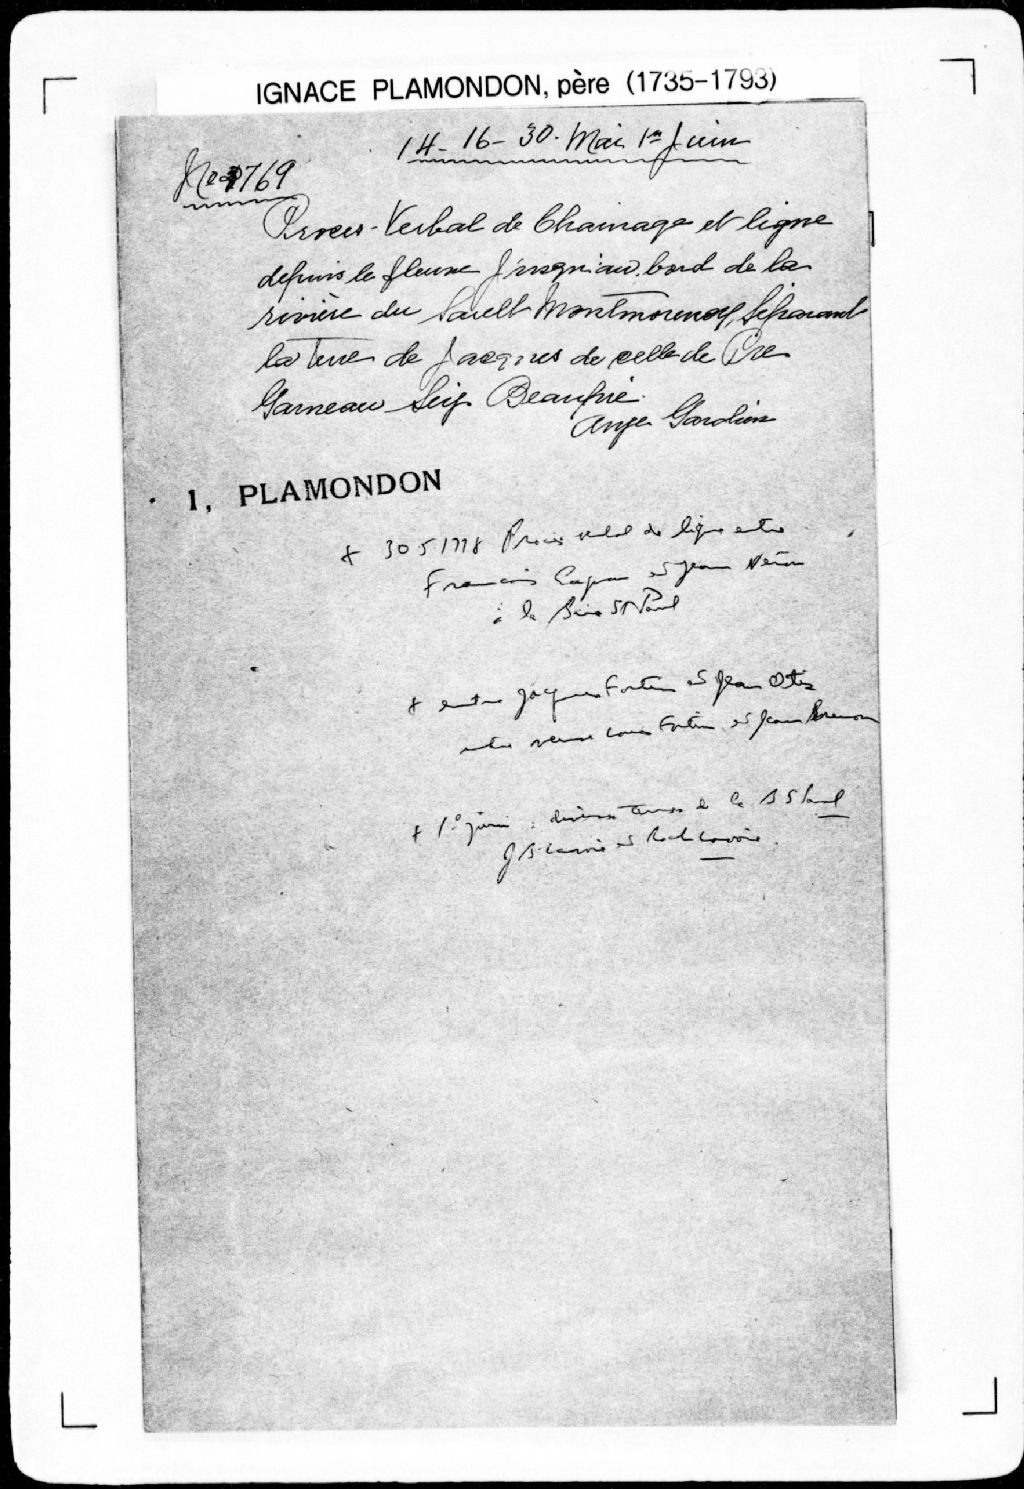 IGNACE PLAMONDON, père (1735-1793)
14-16-30. Mai 1er Juin
No 1769
Proces-Verbal de Chainage et ligne
depuis le fleuve jusqu'au bord de la
rivière du Sault Montmorency, Séparant
la Terre de Jacques de celle de Pre
Garneau Seig. Beaupré.
Ange Gardien
I, PLAMONDON
+ 30 5 1778 Procès verbal de ligne entre
Francois et Jean
à la Baie St Paul
+ entre Jacques Fortin et Jean Otis
entre veuve Louis Fortin et Jean
+ 1º juin : diverses Terres à la B S Paul
J B Lavoie et Lavoie.